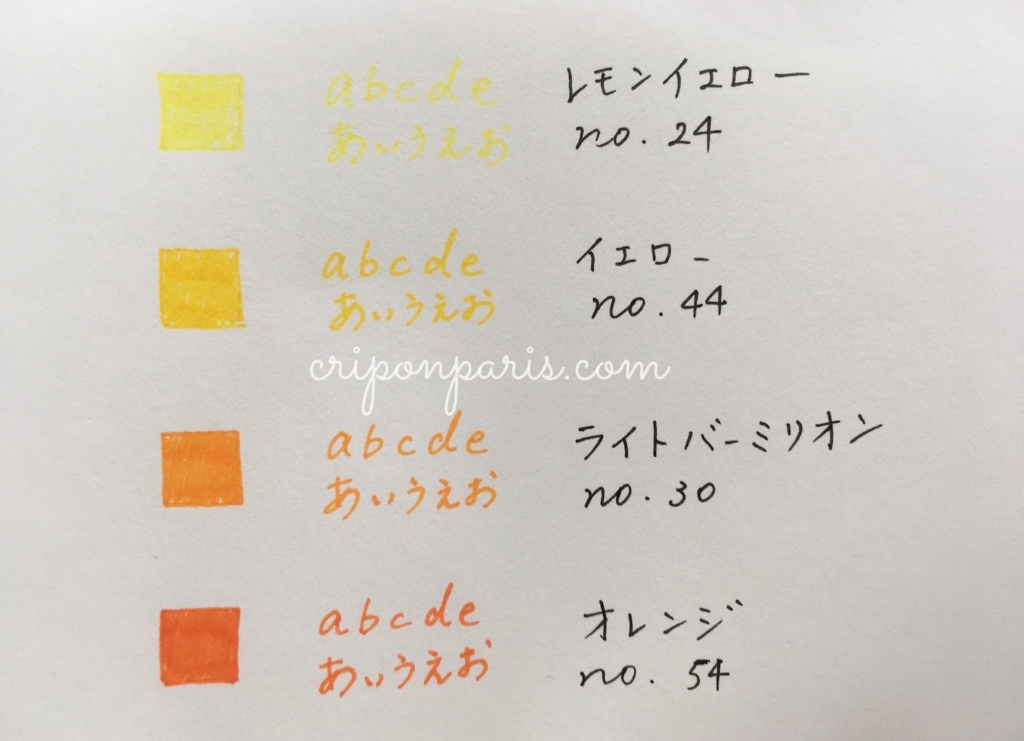 abcde レモンイエロー
あいうえお no. 24
abcde イエロー
あいうえお no. 44
criponparis.com
abcde ライトバーミリオン
あいうえお no. 30
abcde オレンジ
あいうえお no. 54